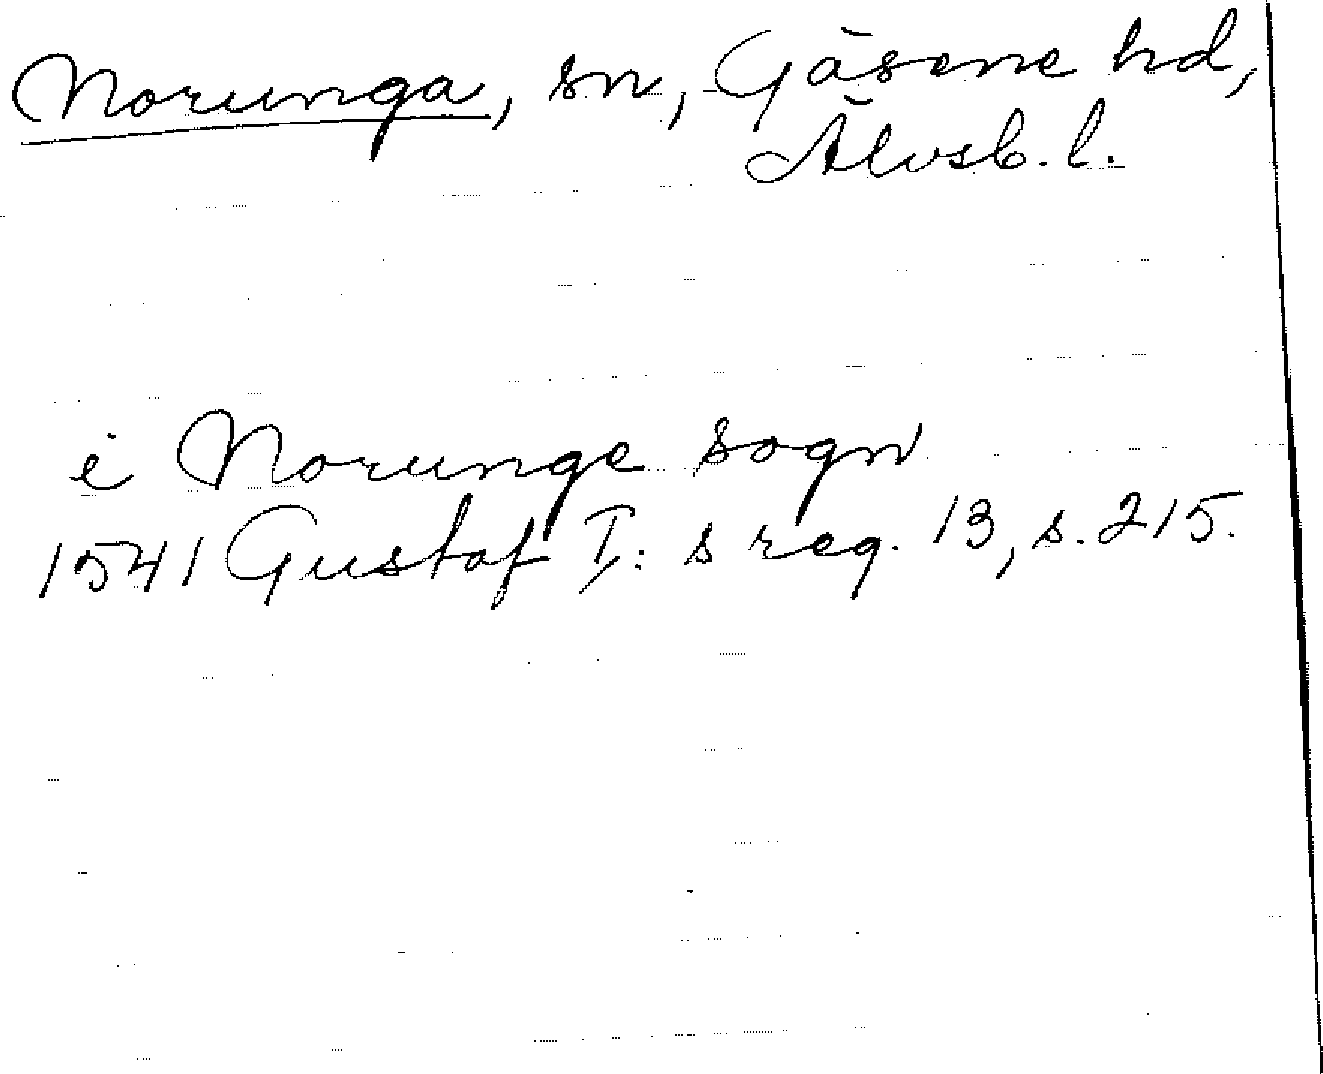 Norunga, sn, Gäsene hd,
Älvsb. l.
i Norunge sogn
1541 Gustaf I: s reg. 13, s. 215.